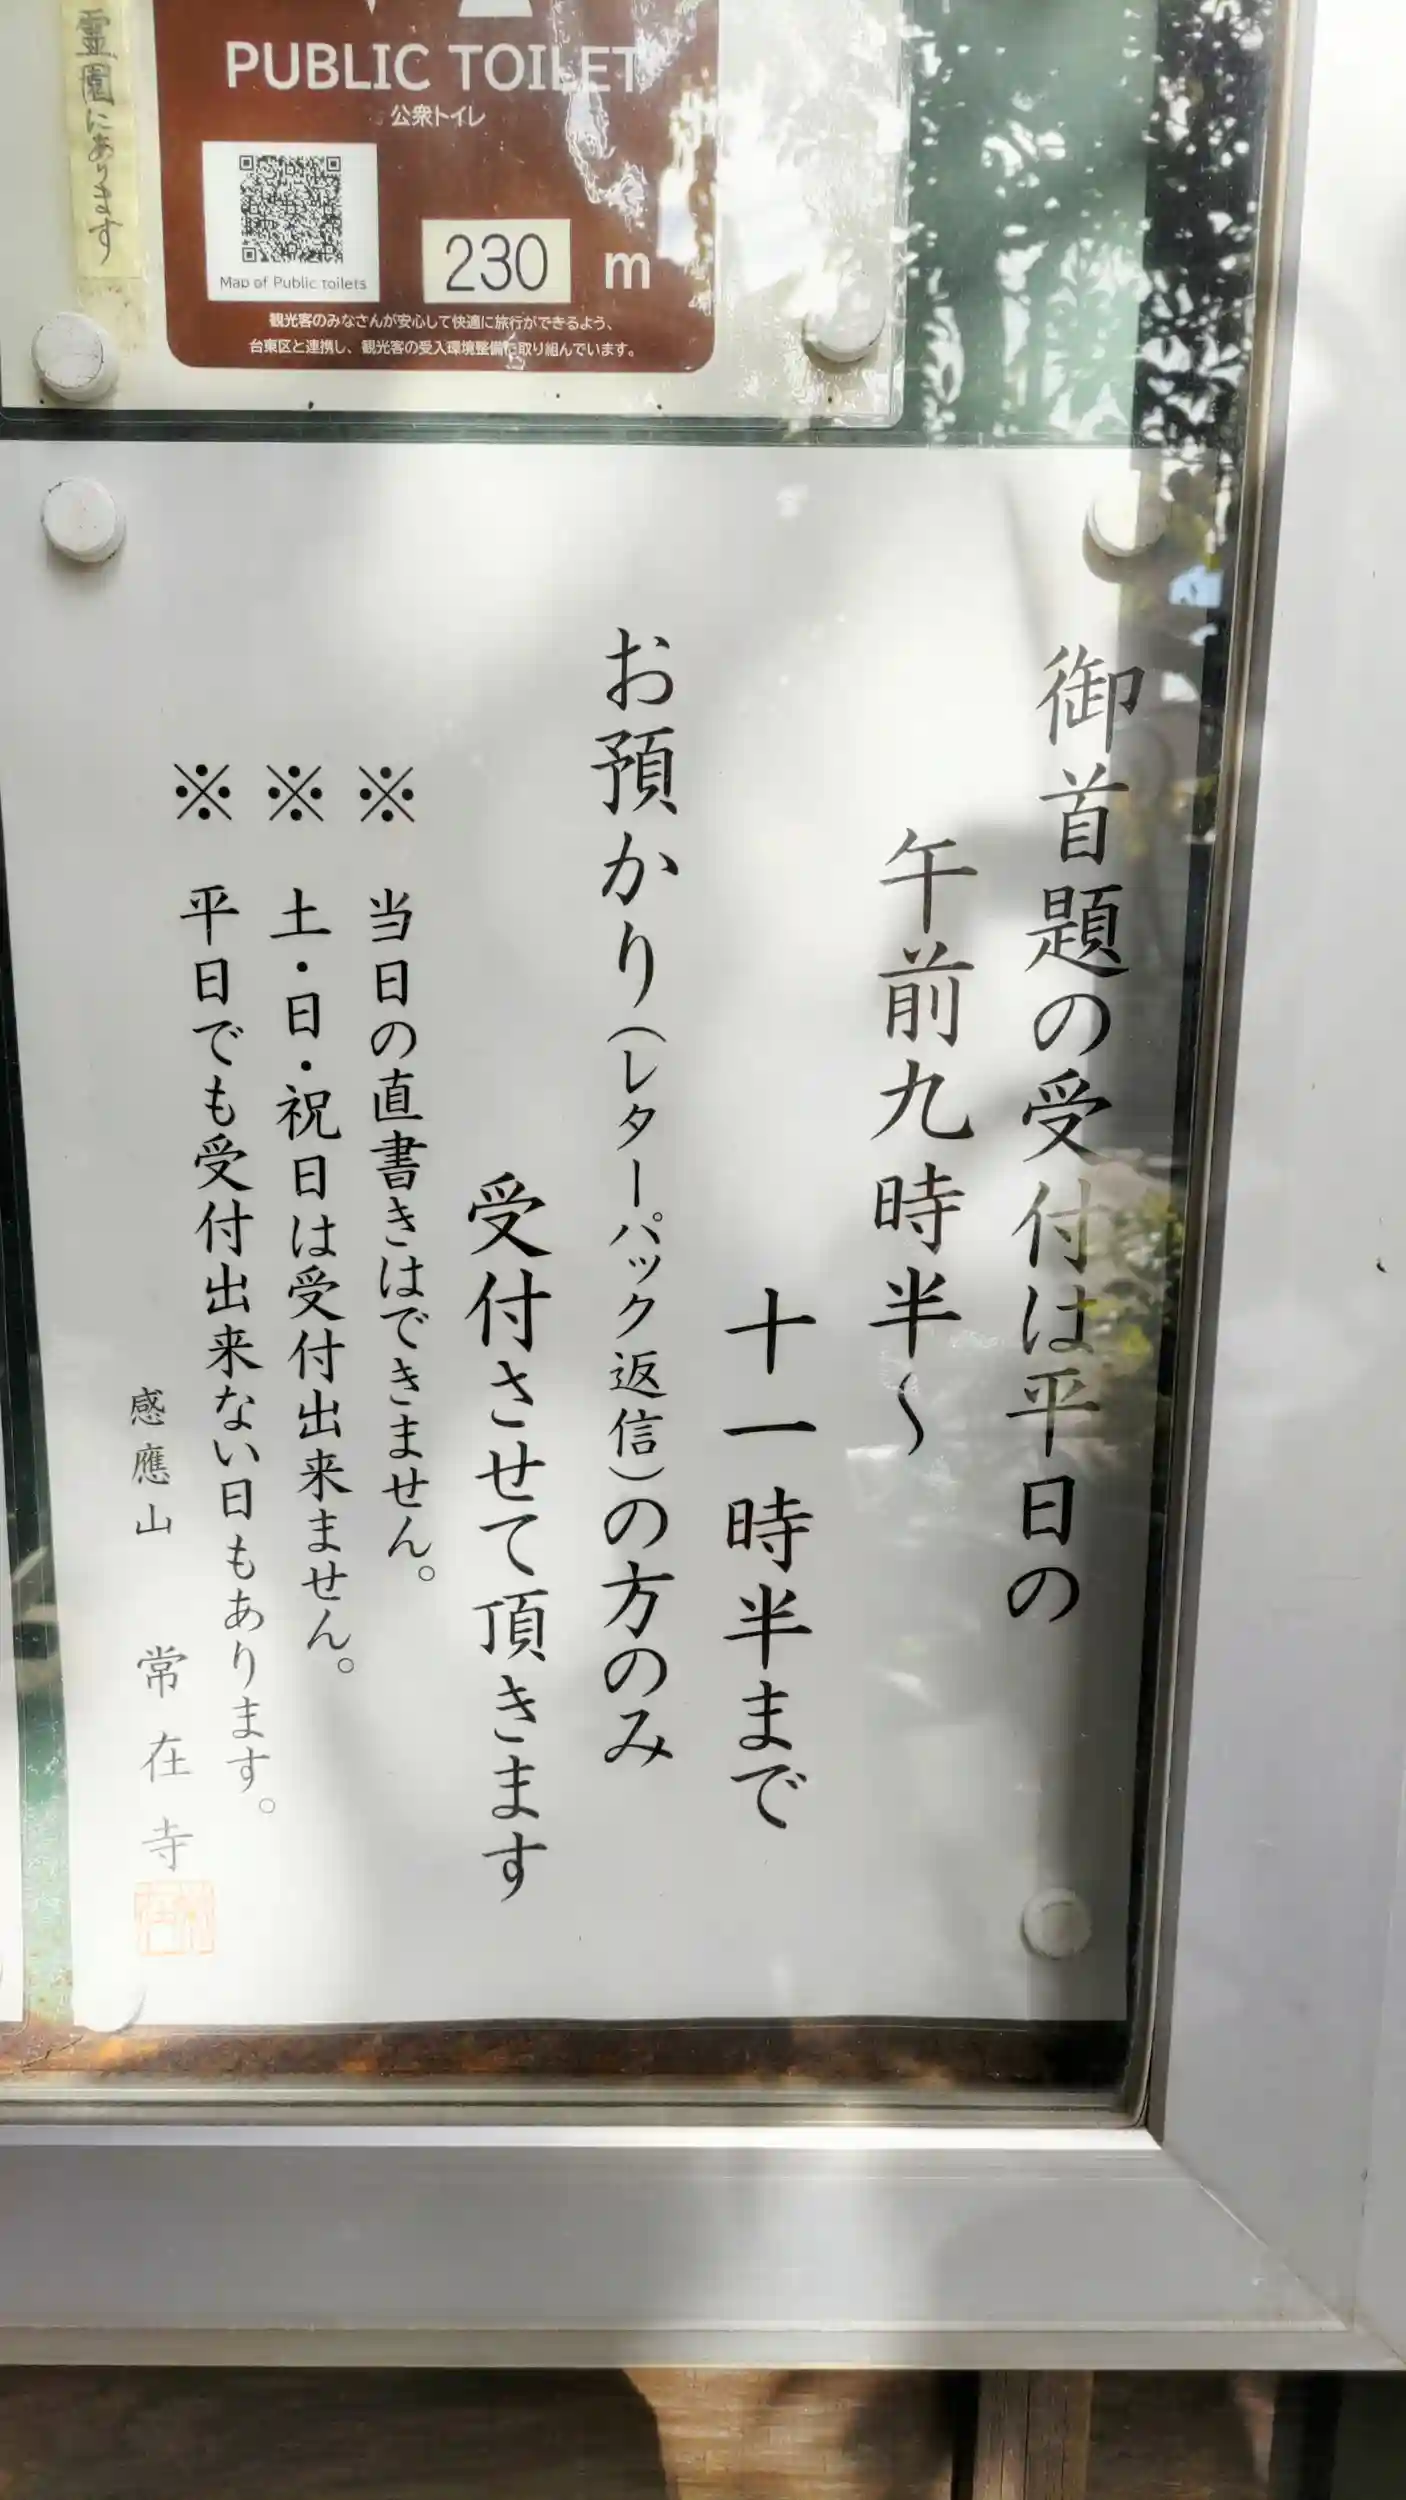 霊園にあります
PUBLIC TOILET
公衆トイレ
Map of Public toilets
230 m
観光客のみなさんが安心して快適に旅行ができるよう、
台東区と連携し、観光客の受入環境整備に取り組んでいます。
御首題の受付は平日の
午前九時半〜
十一時半まで
お預かり(レターパック返信)の方のみ
受付させて頂きます
※ 当日の直書きはできません。
※ 土・日・祝日は受付出来ません。
※ 平日でも受付出来ない日もあります。
感應山 常在寺